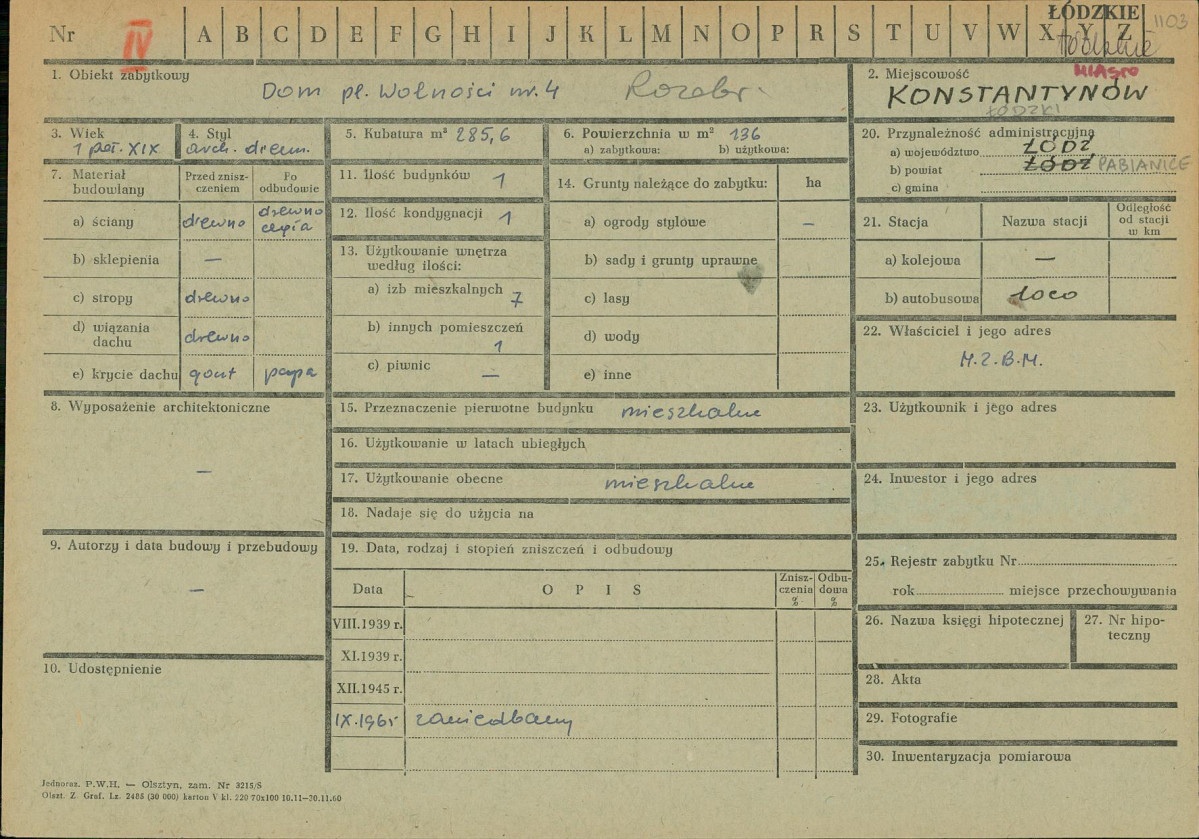 Nr IV A B C D E F G H I J K L M N O P R S T U V W X Y Z
ŁÓDZKIE
1103
MIASTO
1. Obiekt zabytkowy
Dom pl. Wolności nr. 4 Rozebr.
2. Miejscowość
KONSTANTYNÓW
ŁÓDZKI
3. Wiek
1 poł. XIX
4. Styl
arch. drewn.
5. Kubatura m³ 285,6
6. Powierzchnia w m² 136
a) zabytkowa: b) użytkowa:
7. Materiał budowlany
Przed zniszczeniem
Po odbudowie
a) ściany drewno drewno cegła
b) sklepienia —
c) stropy drewno
d) wiązania dachu drewno
e) krycie dachu gont papa
8. Wyposażenie architektoniczne
—
9. Autorzy i data budowy i przebudowy
—
10. Udostępnienie
11. Ilość budynków 1
12. Ilość kondygnacji 1
13. Użytkowanie wnętrza według ilości:
a) izb mieszkalnych 7
b) innych pomieszczeń 1
c) piwnic —
14. Grunty należące do zabytku: ha
a) ogrody stylowe —
b) sady i grunty uprawne
c) lasy
d) wody
e) inne
15. Przeznaczenie pierwotne budynku mieszkalne
16. Użytkowanie w latach ubiegłych
17. Użytkowanie obecne mieszkalne
18. Nadaje się do użycia na
19. Data, rodzaj i stopień zniszczeń i odbudowy
Data OPIS Zniszczenia % Odbudowa %
VIII.1939 r.
XI.1939 r.
XII.1945 r.
IX.1965 zaniedbany
20. Przynależność administracyjna
a) województwo ŁÓDŹ
b) powiat ŁÓDŹ PABIANICE
c) gmina
21. Stacja Nazwa stacji Odległość od stacji w km
a) kolejowa —
b) autobusowa loco
22. Właściciel i jego adres
M.Z.B.M.
23. Użytkownik i jego adres
24. Inwestor i jego adres
25. Rejestr zabytku Nr
rok miejsce przechowywania
26. Nazwa księgi hipotecznej
27. Nr hipoteczny
28. Akta
29. Fotografie
30. Inwentaryzacja pomiarowa
Jednoraz. P.W.H. — Olsztyn, zam. Nr 3215/S
Olszt. Z. Graf. Lz. 2485 (30 000) karton V kl. 220 70x100 10.11—30.11.60